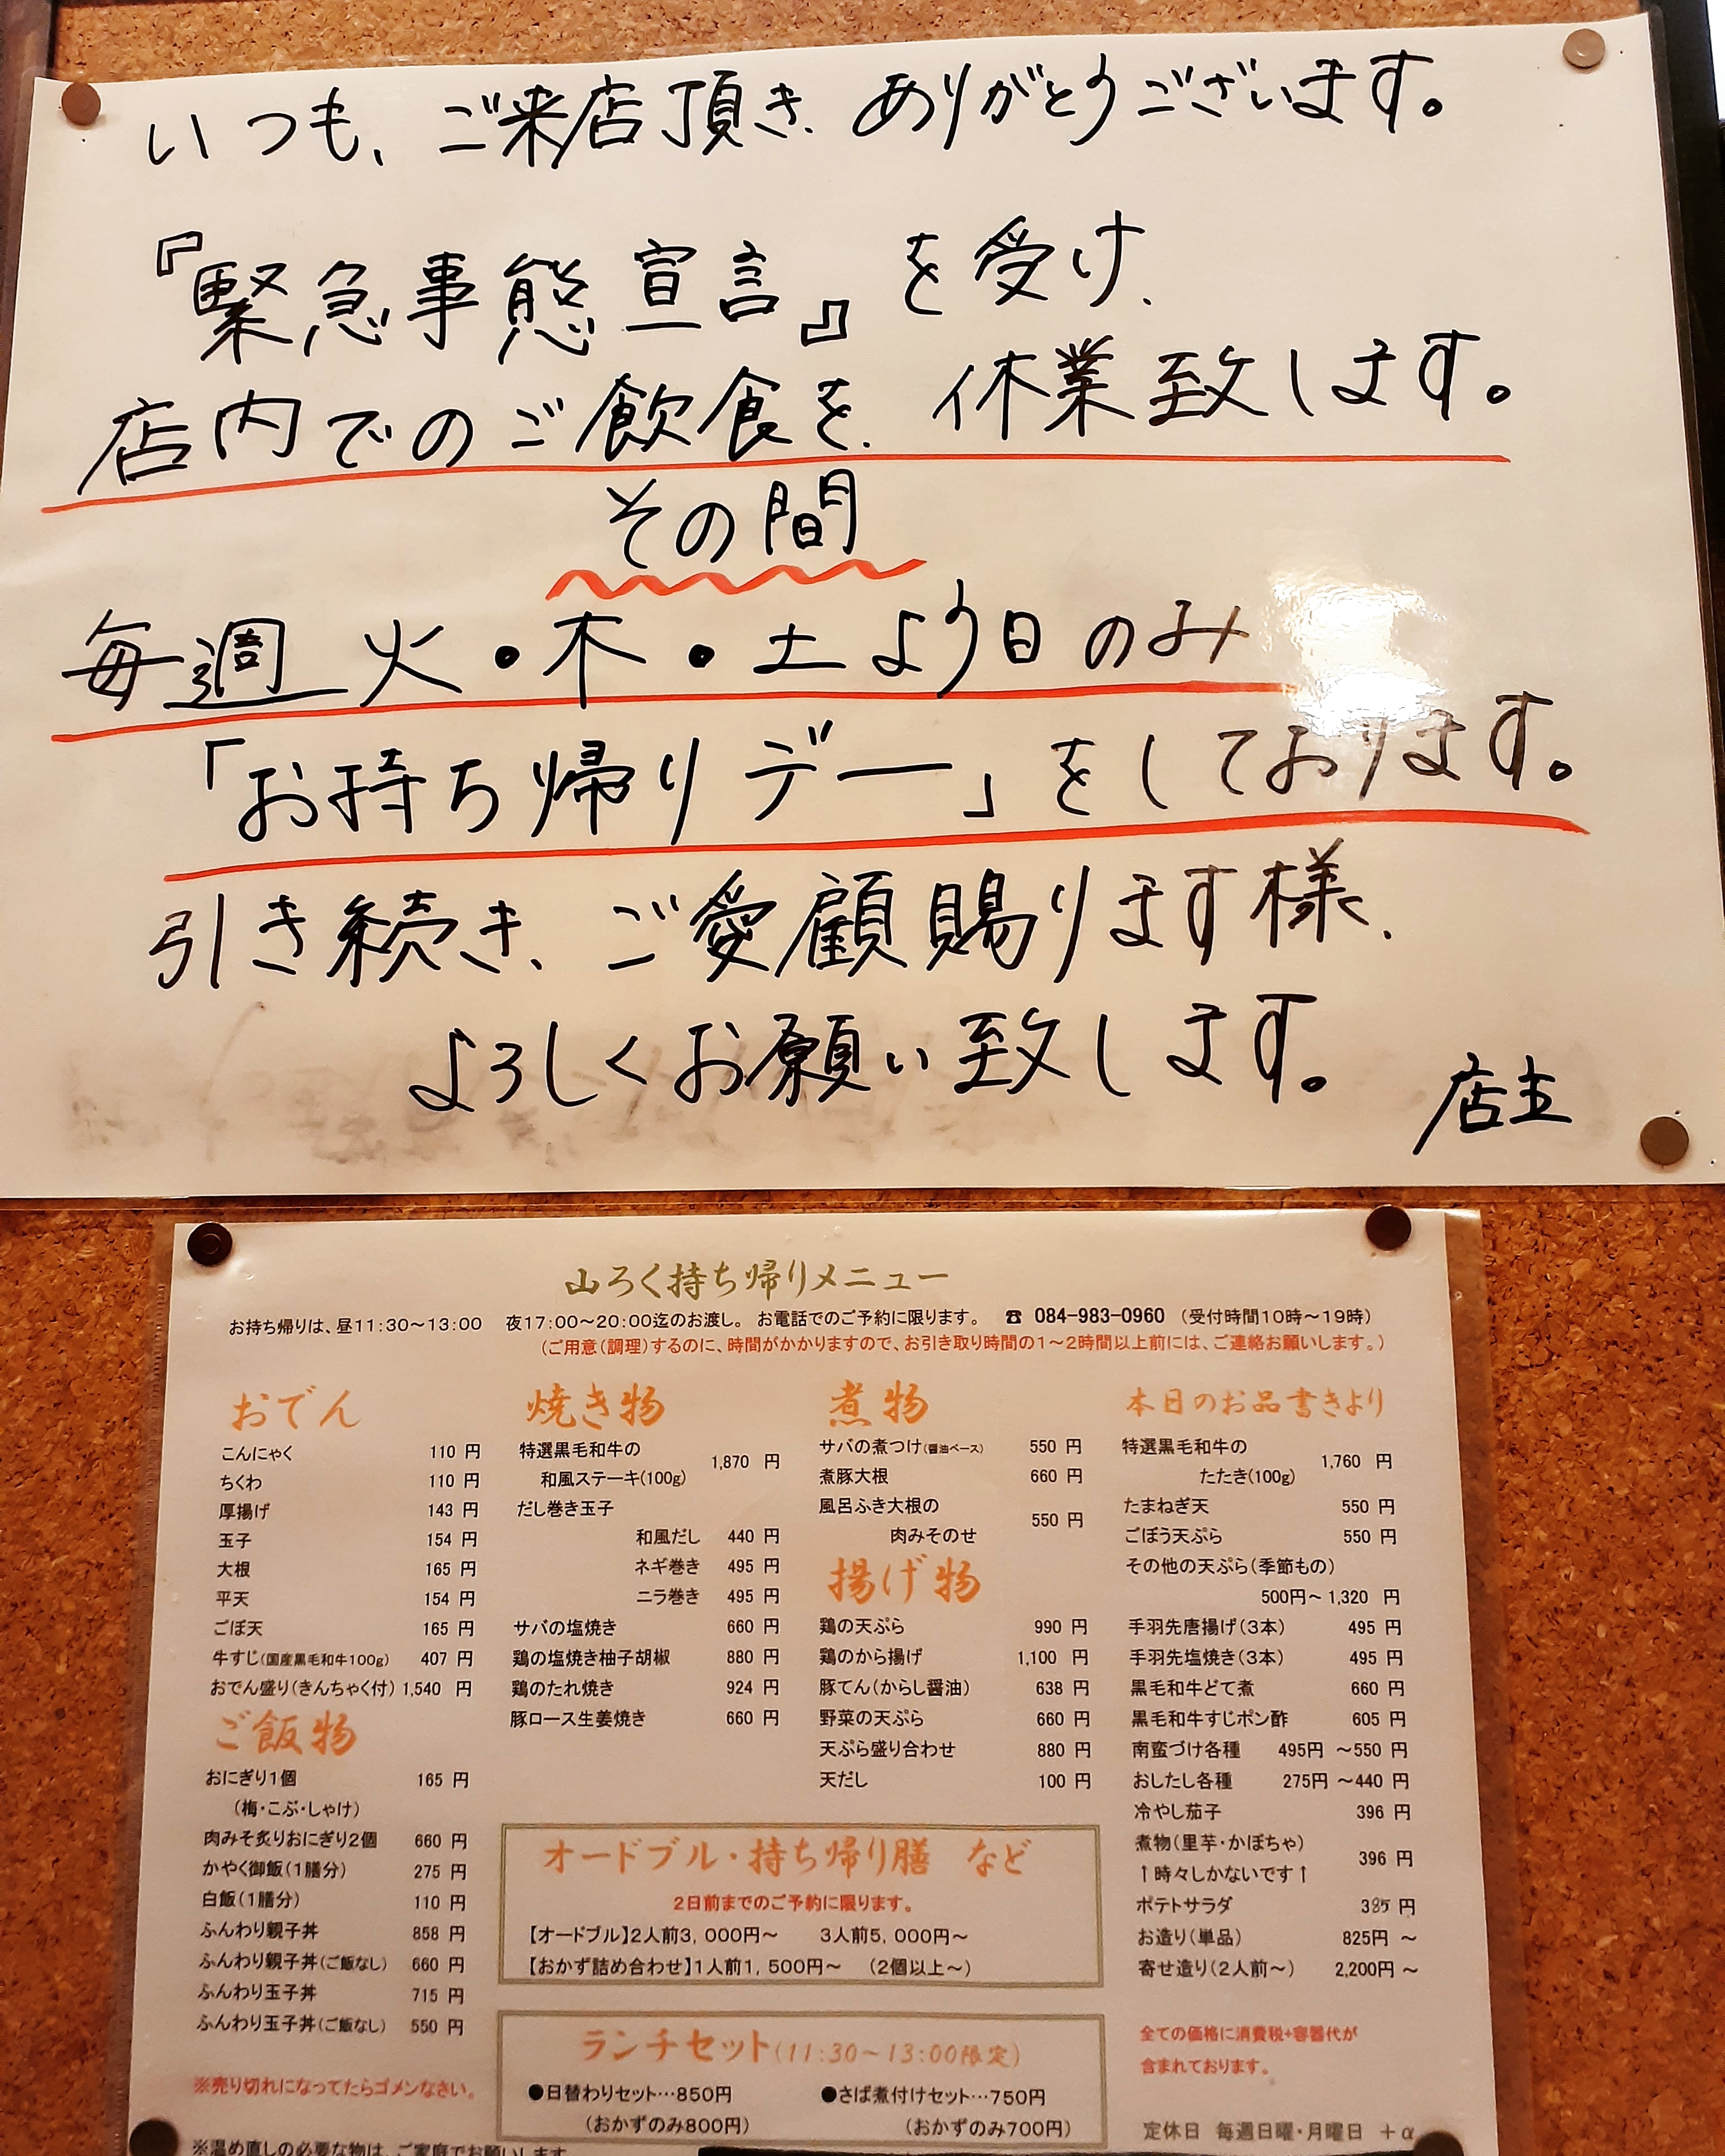 いつも、ご来店頂き、ありがとうございます。
『緊急事態宣言』を受け、
店内でのご飲食を、休業致します。
その間
毎週 火・木・土より日のみ
「お持ち帰りデー」をしております。
引き続き、ご愛顧賜ります様、
よろしくお願い致します。
店主
山ろく持ち帰りメニュー
お持ち帰りは、昼11:30～13:00 夜17:00～20:00迄のお渡し。 お電話でのご予約に限ります。 ☎ 084-983-0960 (受付時間10時～19時)
(ご用意(調理)するのに、時間がかかりますので、お引き取り時間の1～2時間以上前には、ご連絡お願いします。)
おでん
こんにゃく 110 円
ちくわ 110 円
厚揚げ 143 円
玉子 154 円
大根 165 円
平天 154 円
ごぼ天 165 円
牛すじ(国産黒毛和牛100g) 407 円
おでん盛り(きんちゃく付) 1,540 円
ご飯物
おにぎり1個 165 円
(梅・こぶ・しゃけ)
肉みそ炙りおにぎり2個 660 円
かやく御飯(1膳分) 275 円
白飯(1膳分) 110 円
ふんわり親子丼 858 円
ふんわり親子丼(ご飯なし) 660 円
ふんわり玉子丼 715 円
ふんわり玉子丼(ご飯なし) 550 円
※売り切れになってたらゴメンなさい。
※温め直しの必要な物は、ご家庭でお願いします
焼き物
特選黒毛和牛の
和風ステーキ(100g) 1,870 円
だし巻き玉子
和風だし 440 円
ネギ巻き 495 円
ニラ巻き 495 円
サバの塩焼き 660 円
鶏の塩焼き柚子胡椒 880 円
鶏のたれ焼き 924 円
豚ロース生姜焼き 660 円
煮物
サバの煮つけ(醤油ベース) 550 円
煮豚大根 660 円
風呂ふき大根の
肉みそのせ 550 円
揚げ物
鶏の天ぷら 990 円
鶏のから揚げ 1,100 円
豚てん(からし醤油) 638 円
野菜の天ぷら 660 円
天ぷら盛り合わせ 880 円
天だし 100 円
オードブル・持ち帰り膳 など
2日前までのご予約に限ります。
【オードブル】2人前3,000円～ 3人前5,000円～
【おかず詰め合わせ】1人前1,500円～ (2個以上～)
ランチセット(11:30～13:00限定)
●日替わりセット…850円 ●さば煮付けセット…750円
(おかずのみ800円) (おかずのみ700円)
本日のお品書きより
特選黒毛和牛の
たたき(100g) 1,760 円
たまねぎ天 550 円
ごぼう天ぷら 550 円
その他の天ぷら(季節もの)
500円～1,320 円
手羽先唐揚げ(3本) 495 円
手羽先塩焼き(3本) 495 円
黒毛和牛どて煮 660 円
黒毛和牛すじポン酢 605 円
南蛮づけ各種 495円 ～550 円
おしたし各種 275円 ～440 円
冷やし茄子 396 円
煮物(里芋・かぼちゃ) 396 円
↑時々しかないです↑
ポテトサラダ 385 円
お造り(単品) 825円 ～
寄せ造り(2人前～) 2,200円 ～
全ての価格に消費税+容器代が
含まれております。
定休日 毎週日曜・月曜日 +α